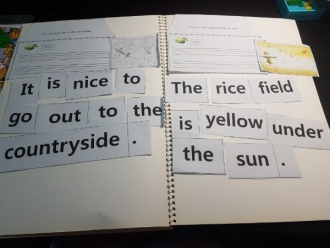 It is nice to
go out to the
countryside .
The rice field
is yellow under
the sun .